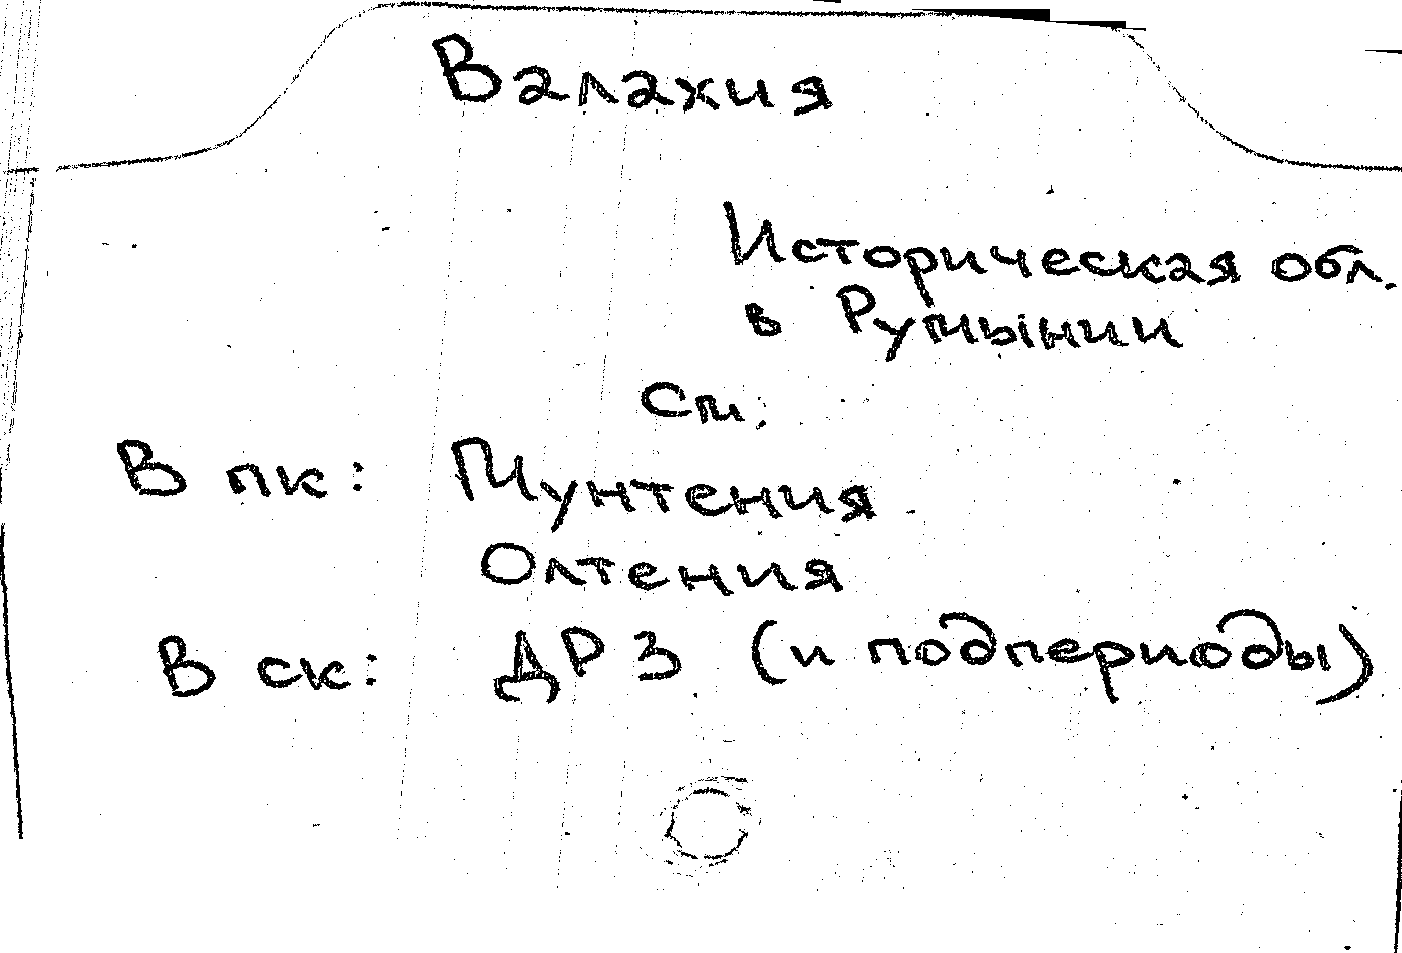 Валахия
Историческая обл.
в Румынии
См.
В пк: Мунтения
Олтения
В ск: ДРЗ (и подпериоды)